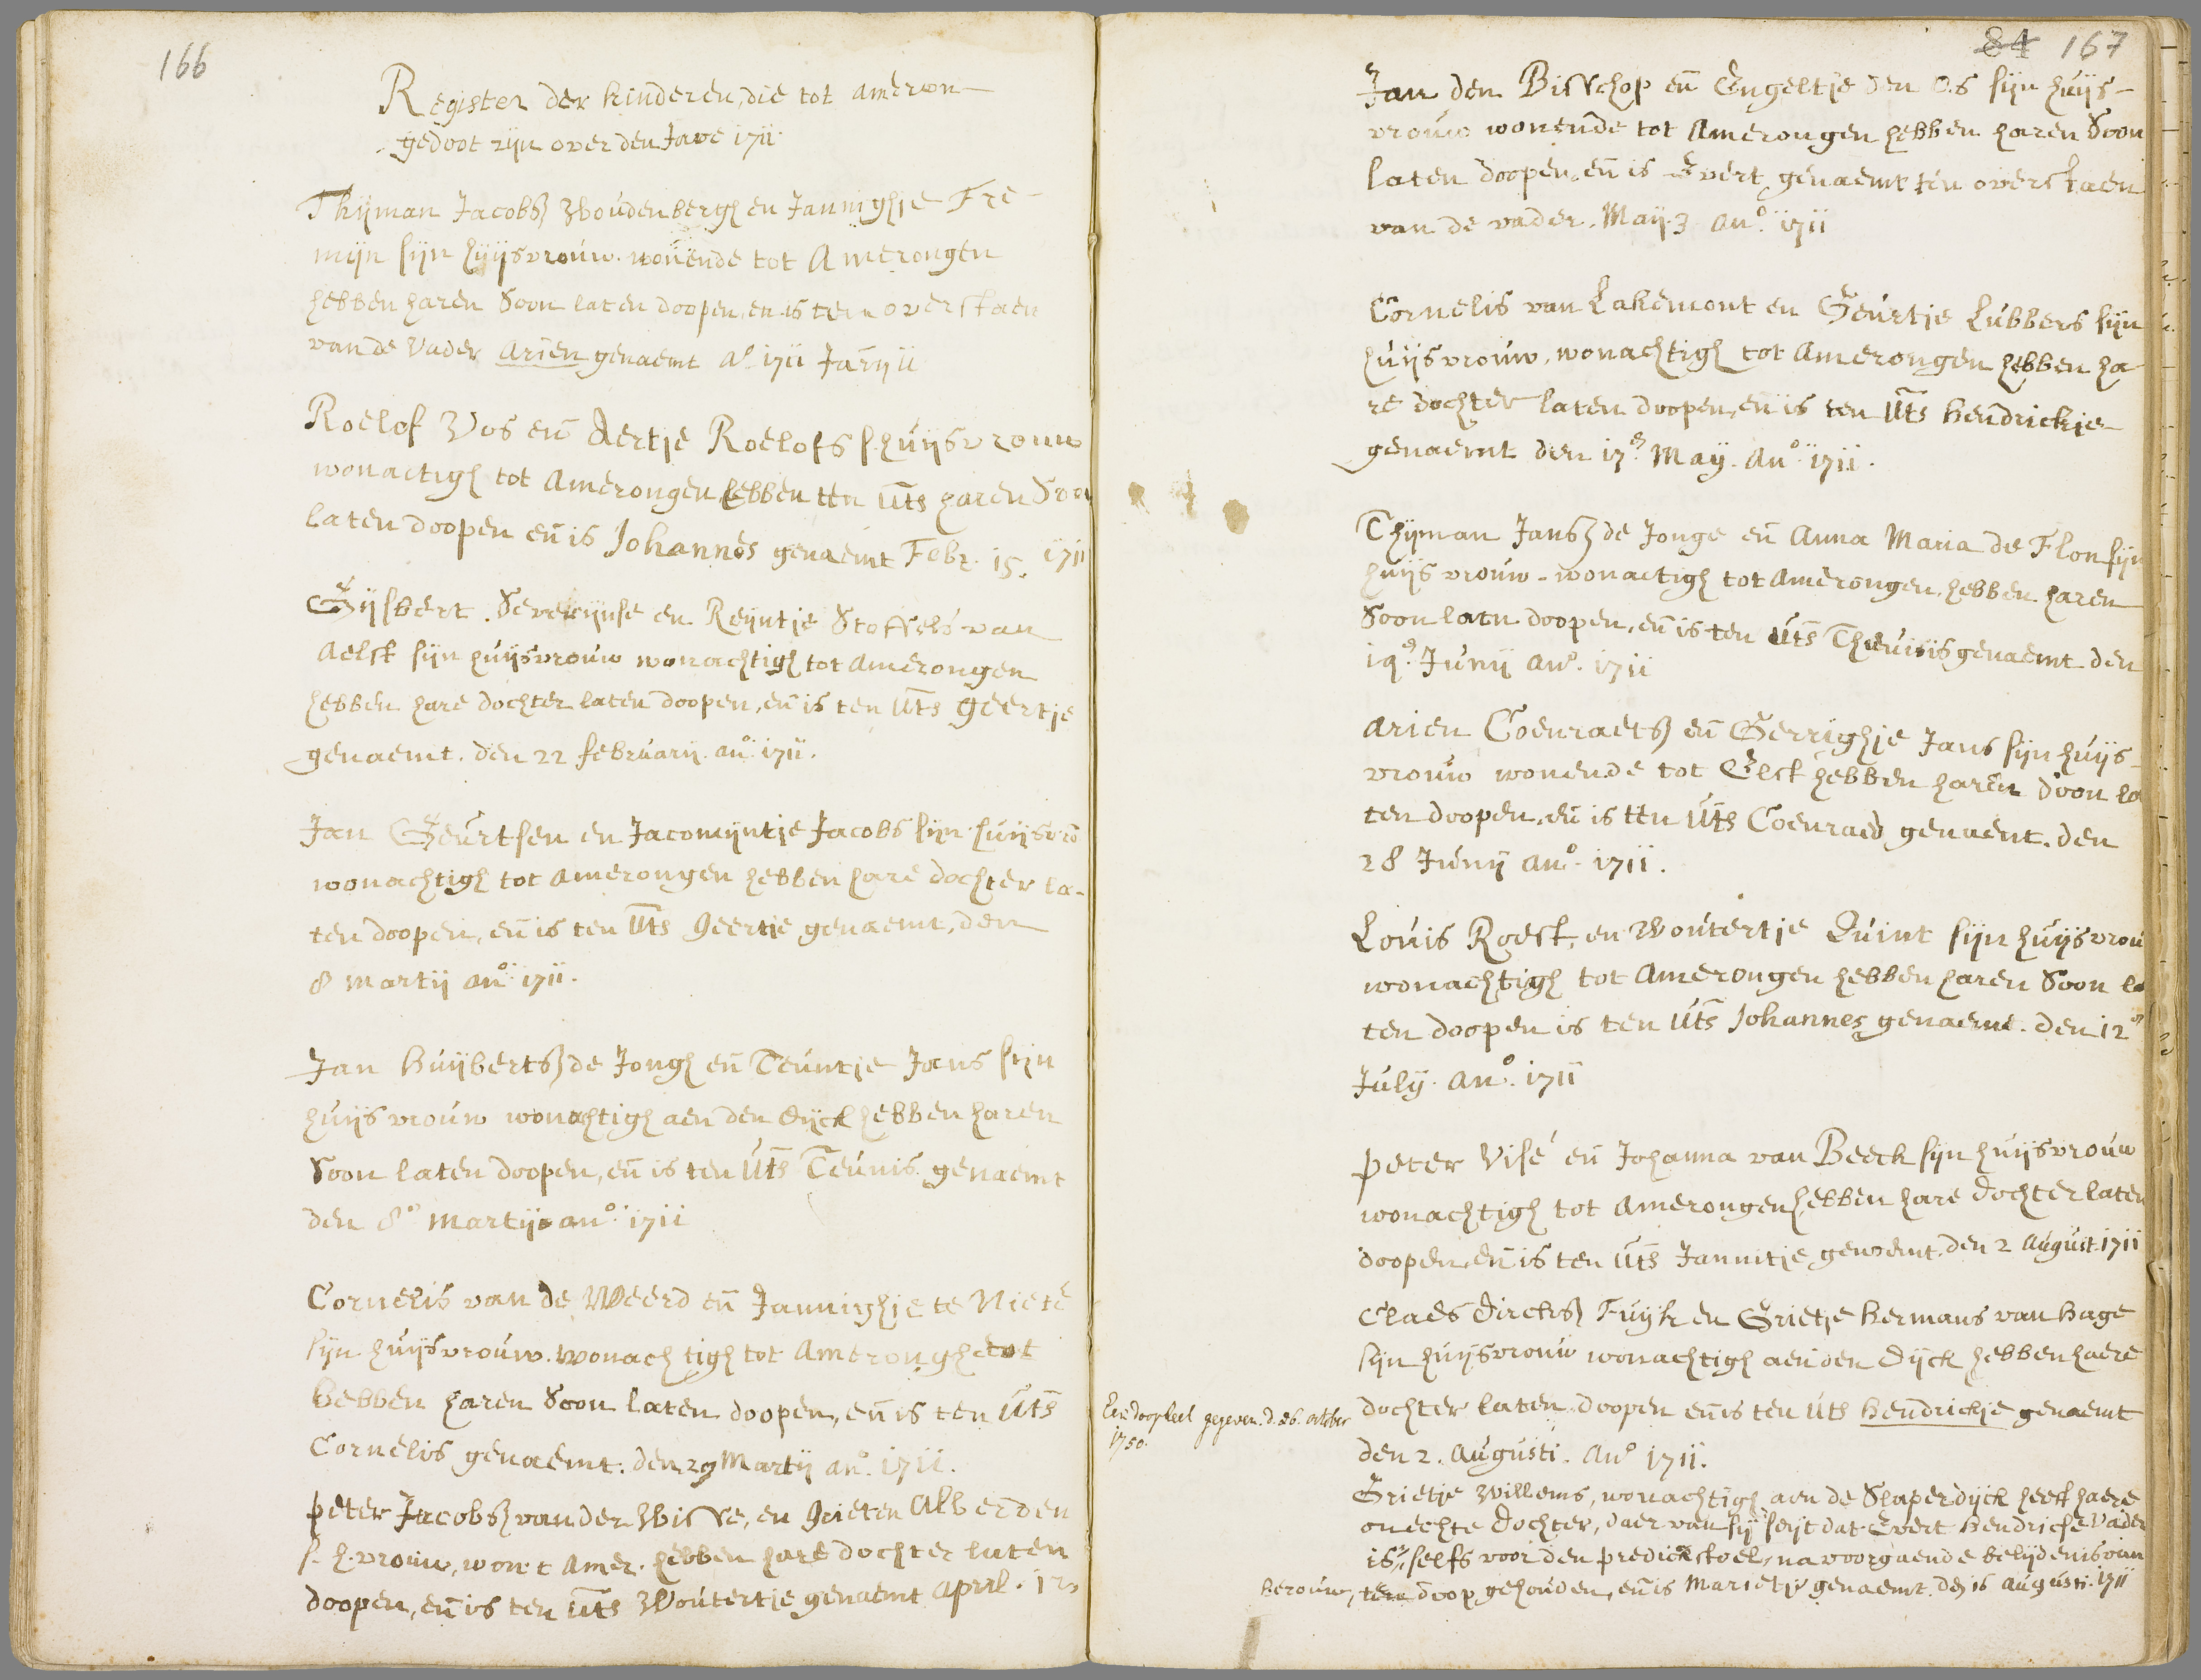 166
Register der kinderen, die tot ameron-
gedoot zijn over den Jare 1711.
Thijman Jacobsz Woudenbergh en Jannighje Fre-
mijn sijn huijsvrouw. wonende tot Amerongen
hebben haren Soon laten doopen, en is ten overstaen
van de Vader Arien genaemt Ao 1711 Jan̄ij 11
Roelof Vos en̄ Aertje Roelofs s. huijsvrouw
wonactigh tot Amerongen hebben ten Ut̄s haren Soon
laten doopen en̄ is Johannes genaemt Febr. 15. 1711
Gijsbert Severijnse en Reijntje Stoffels van
Aelst sijn huijsvrouw wonachtigh tot Amerongen
hebben hare dochter laten doopen, en̄ is ten Ut̄s Geertje
genaemt. den 22 februarij. ano. 1711.
Jan Geurtsen en Jacomijntje Jacobs sijn huijsvrō
wonachtigh tot Amerongen hebben hare dochter la-
ten doopen, en̄ is ten Ut̄s Geertje genaemt, den
8 Martij ano. 1711.
Jan Huijbertsz de Jongh en̄ Teuntje Jans sijn
huijsvrouw wonachtigh aen den Dijck hebben haren
Soon laten doopen, en̄ is ten Ut̄s Teunis genaemt
den 8o Martij ano. 1711
Cornelis van de Weerd en̄ Jannighje te Niete
sijn huijsvrouw. wonachtigh tot Amerongh
Hebben haren Soon laten doopen, en̄ is ten Ut̄s
Cornelis genaemt. den 29 Martij ano. 1711.
Peter Jacobsz van der Wisse, en Grieten Alberden
s. h. vrouw, won. t Amer. hebben hare dochter laten
doopen, en̄ is ten Ut̄s Woutertje genaemt April. 12.
84 167
Jan den Bisschop en̄ Engeltje den Os sijn huijs-
vrouw wonende tot Amerongen hebben haren Soon
laten doopen, en̄ is Evert genaemt ten overstaen
van de vader. Maij. 3 ano. 1711
Cornelis van Lakemont en Geurtje Lubbers sijn
huijsvrouw, wonachtigh tot Amerongen hebben ha
re dochter laten doopen, en̄ is ten Ut̄s Hendrickje
genaemt den 17e. Maij. Ano. 1711.
Thijman Jansz de Jonge en̄ Anna Maria de Flon sijn
huijsvrouw. wonactigh tot Amerongen. hebben haren
Soon latn doopen, en̄ is ten Ut̄s Theunis genaemt den
19e. Junij ano. 1711
Arien Coenraetsz en̄ Gerrighje Jans sijn huijs-
vrouw wonende tot Elst hebben haren Soon la
ten doopen, en̄ is ten Ut̄s Coenraed genaemt. den
28 Junij ano. 1711.
Louis Roest, en Woutertje Quint sijn huijsvrou
wonachtigh tot Amerongen hebben haren Soon la
ten doopen is ten Ut̄s Johannes genaemt. den 12e
Julij. ano. 1711
Peter Visé en̄ Johanna van Beeck sijn huijsvrouw
wonachtigh tot Amerongen hebben hare dochter laten
doopen, en̄ is ten Ut̄s Jannitje genaemt. den 2 August. 1711
Claes Dircksz Fuijk en Grietje Hermans van Hage
sijn huijsvrouw wonachtigh aen den Dijck hebben haere
dochter laten doopen en̄ is ten Uts Hendrickje genaemt
den 2. Augusti. Ano 1711.
Een doopceel gegeven. d. 26. october
1750.
Grietje Willems, wonachtigh aen de Slaperdijck heeft haere
onechte dochter, daer van sij seijt dat Evert Hendrickse Vader
is, selfs voor den predickstoel, na voorgaende belijdenis van
berouw, ten doop gehouden, en̄ is Marietje genaemt. den 16 Augusti. 1711